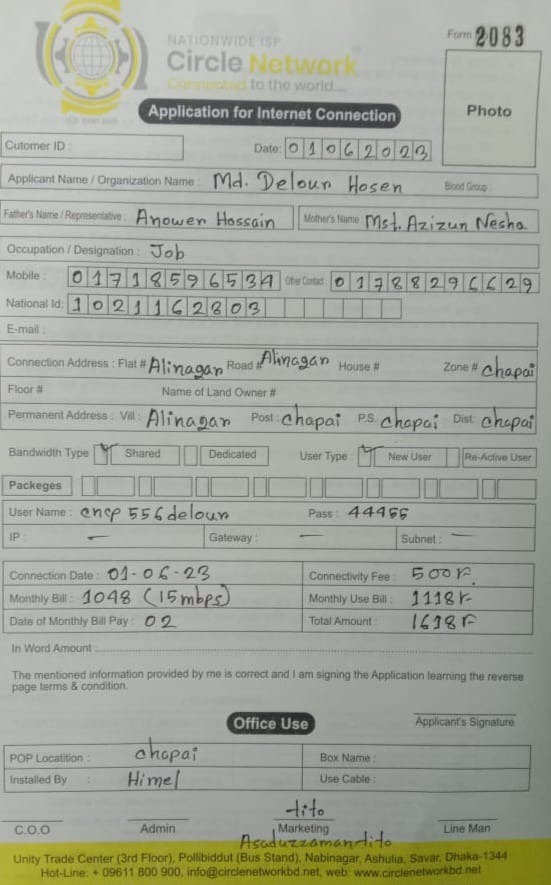 Form 2083
NATIONWIDE ISP
Circle Network
Connected to the world....
Application for Internet Connection
Photo
Cutomer ID :
Date: 01062023
Applicant Name / Organization Name : Md. Delour Hosen Blood Group :
Father's Name / Representative : Anower Hossain Mother's Name : Mst. Azizun Nesha
Occupation / Designation : Job
Mobile : 01718596534 Other Contact : 01788296629
National Id: 1021162803
E-mail :
Connection Address : Flat # Alinagar Road # Alinagar House # Zone # chapai
Floor # Name of Land Owner #
Permanent Address : Vill : Alinagar Post : chapai P.S. chapai Dist: chapai
Bandwidth Type ✓ Shared Dedicated User Type : ✓ New User Re-Active User
Packeges
User Name : cncp 556 delour Pass : 44455
IP : — Gateway : — Subnet : —
Connection Date : 01-06-23 Connectivity Fee : 500৳
Monthly Bill : 1048 (15mbps) Monthly Use Bill : 1118৳
Date of Monthly Bill Pay : 02 Total Amount : 1618৳
In Word Amount
The mentioned information provided by me is correct and I am signing the Application learning the reverse
page terms & condition.
Office Use
Applicant's Signature
POP Locatition : chapai Box Name :
Installed By : Himel Use Cable :
tito
C.O.O Admin Marketing Line Man
Asaduzzaman tito
Unity Trade Center (3rd Floor), Pollibiddut (Bus Stand), Nabinagar, Ashulia, Savar, Dhaka-1344
Hot-Line: + 09611 800 900, info@circlenetworkbd.net, web: www.circlenetworkbd.net